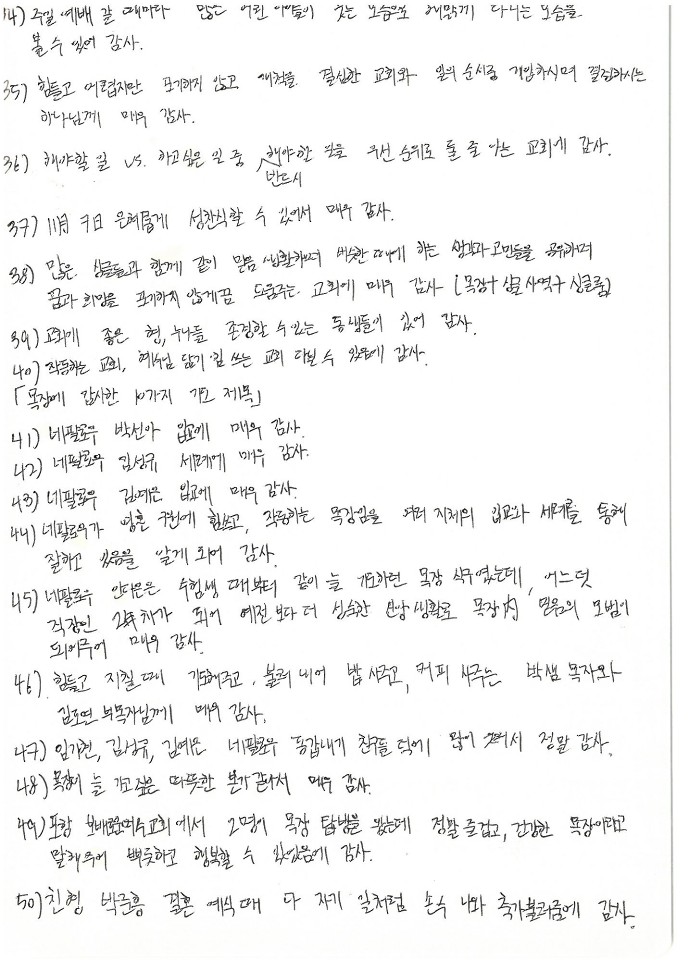 34) 주일 예배 갈 때마다 많은 어린 아이들이 웃는 모습으로 해맑게 다니는 모습을
볼 수 있어 감사.
35) 힘들고 어렵지만 포기하지 않고 개척을 결심한 교회와 일의 순서중 개입하시며 결정하시는
하나님께 매우 감사.
36) 해야할 일 vs. 하고싶은 일 중 반드시 해야한 것을 우선 순위로 둘 줄 아는 교회에 감사.
37) 11月 7日 은혜롭게 성찬식할 수 있어서 매우 감사.
38) 많은 싱글들과 함께 같이 믿음 생활하며 비슷한 때에 하는 생각과 고민들을 공유하며
꿈과 희망을 포기하지 않게끔 도움주는 교회에 매우 감사 (목장+싱글 사역+싱글룸)
39) 교회에 좋은 형, 누나들 존경할 수 있는 동생들이 있어 감사.
40) 작동하는 교회, 예수님 닮기 힘 쓰는 교회 다닐 수 있음에 감사.
「목장에 감사한 10가지 기도 제목」
41) 네팔로우 박선아 입교에 매우 감사.
42) 네팔로우 김성규 세례에 매우 감사.
43) 네팔로우 김예은 입교에 매우 감사.
44) 네팔로우가 영혼 구원에 힘쓰고, 작동하는 목장임을 여러 지체의 입교와 세례를 통해
잘하고 있음을 알게 되어 감사.
45) 네팔로우 안다은은 수험생 때부터 같이 늘 기도하던 목장 식구였는데, 어느덧
직장인 2年차가 되어 예전보다 더 성숙한 신앙생활로 목장內 믿음의 모범이
되어주어 매우 감사.
46) 힘들고 지칠 때 기도해주고, 불러 내어 밥 사주고, 커피 사주는 박샘 목자와
김도연 부목자님께 매우 감사.
47) 임가현, 김성규, 김예은 네팔로우 동갑내기 친구들 덕에 많이 웃어서 정말 감사.
48) 목장이 늘 가고싶은 따뜻한 본가 같아서 매우 감사.
49) 포항 보배로운예수교회에서 2명이 목장 탐방을 왔는데 정말 즐겁고, 건강한 목장이라고
말해주어 뿌듯하고 행복할 수 있었음에 감사.
50) 친형 박준흥 결혼 예식 때 다 자기 일처럼 손수 나와 축가불러줌에 감사.